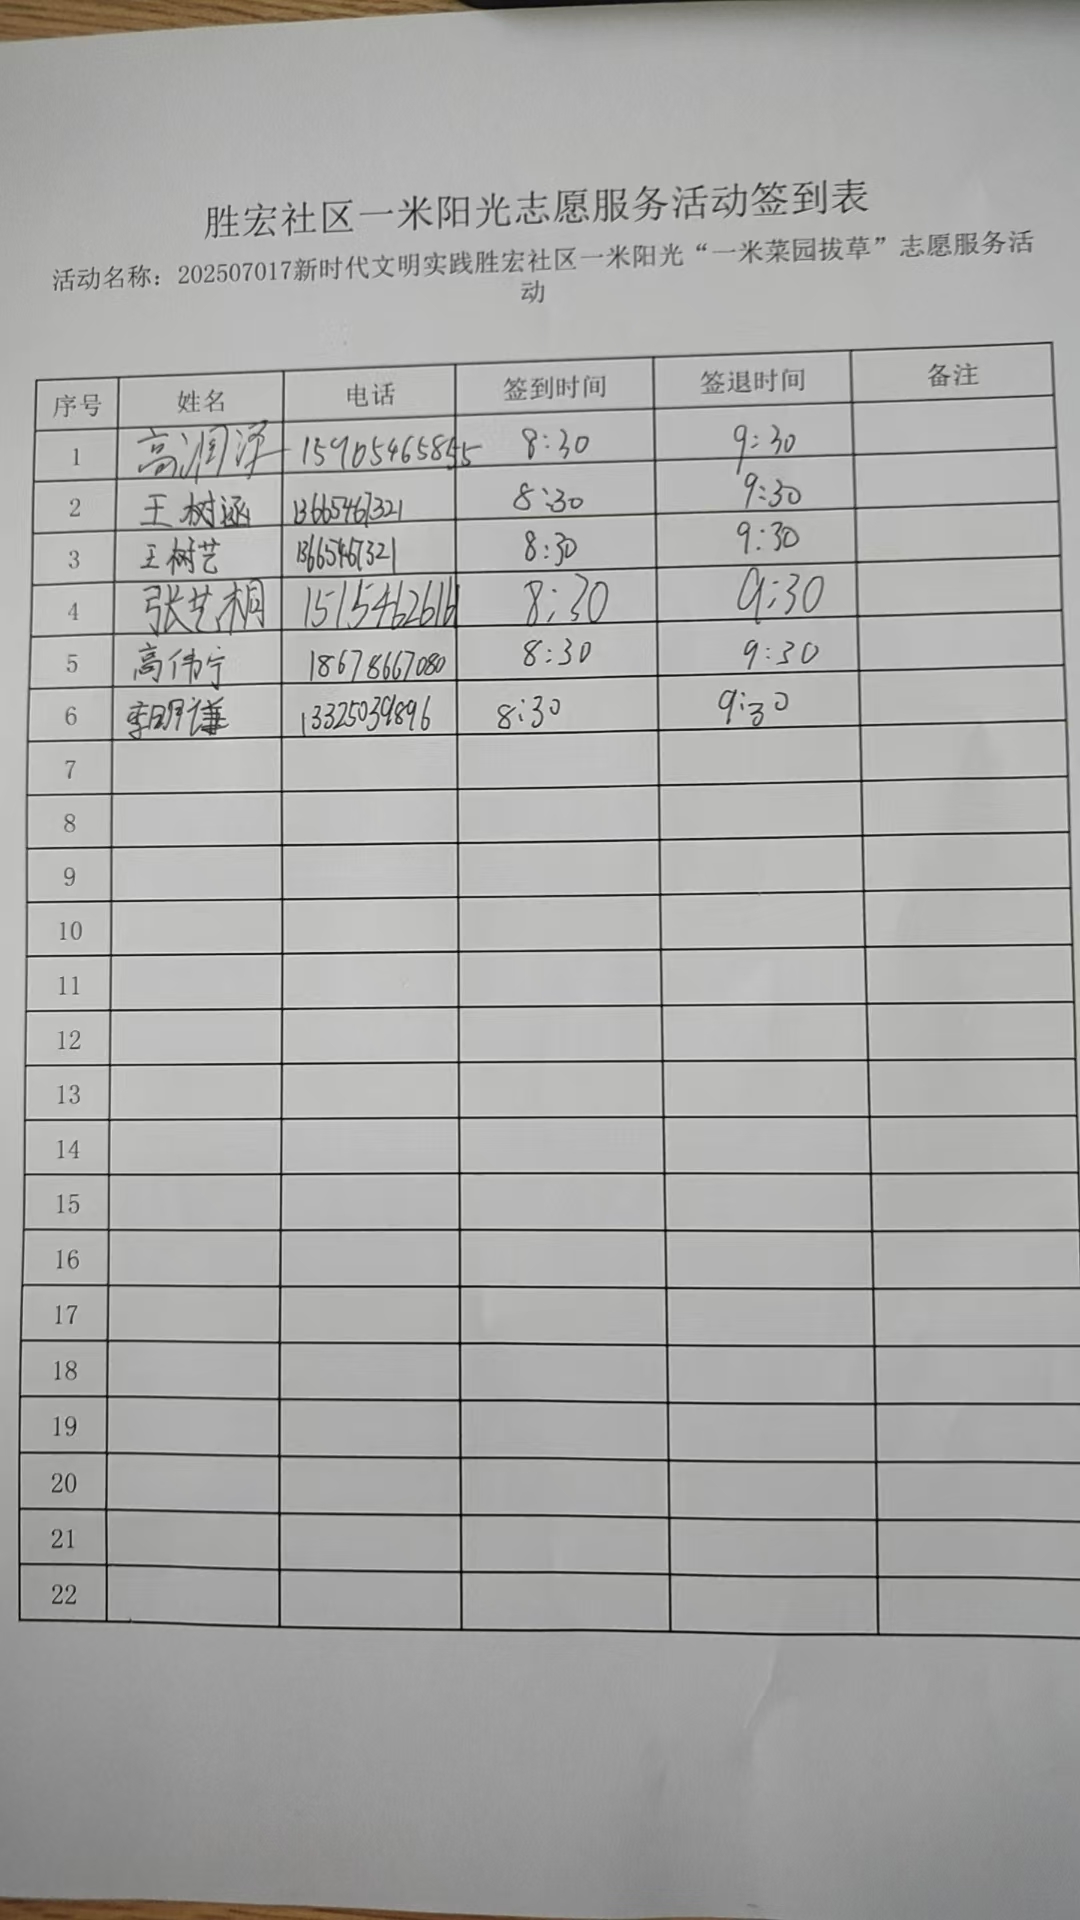 胜宏社区一米阳光志愿服务活动签到表
活动名称：202507017新时代文明实践胜宏社区一米阳光“一米菜园拔草”志愿服务活
动
序号 姓名 电话 签到时间 签退时间 备注
1 高润泽 15905465855 8:30 9:30
2 王树涵 13665467321 8:30 9:30
3 王树艺 13665467321 8:30 9:30
4 张艺桐 15154626161 8:30 9:30
5 高伟宁 18678667080 8:30 9:30
6 李明谦 13325039896 8:30 9:30
7
8
9
10
11
12
13
14
15
16
17
18
19
20
21
22